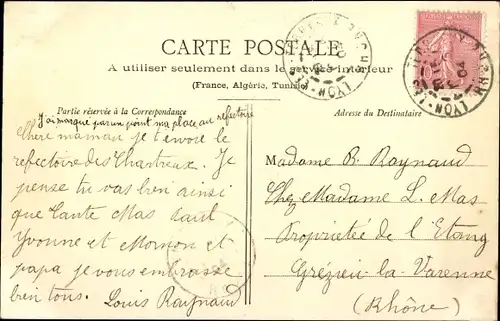 CARTE POSTALE
A utiliser seulement dans le service intérieur
(France, Algérie, Tunisie)
Partie réservée à la Correspondance
J'ai marqué par un point ma place au refectoire
Chere maman je t'envoie le
refectoire des Chartreux. Je
pense tu vas bien ainsi
que tante Mas
Yvonne et et
papa je vous embrasse
bien tous. Louis Raynaud
Adresse du Destinataire
Madame R. Raynaud
Chez Madame L. Mas
Propriété de l'Etang
Grézieu-la-Varenne
(Rhône)
LYON
RHONE
04
LYON
RHONE
04
10